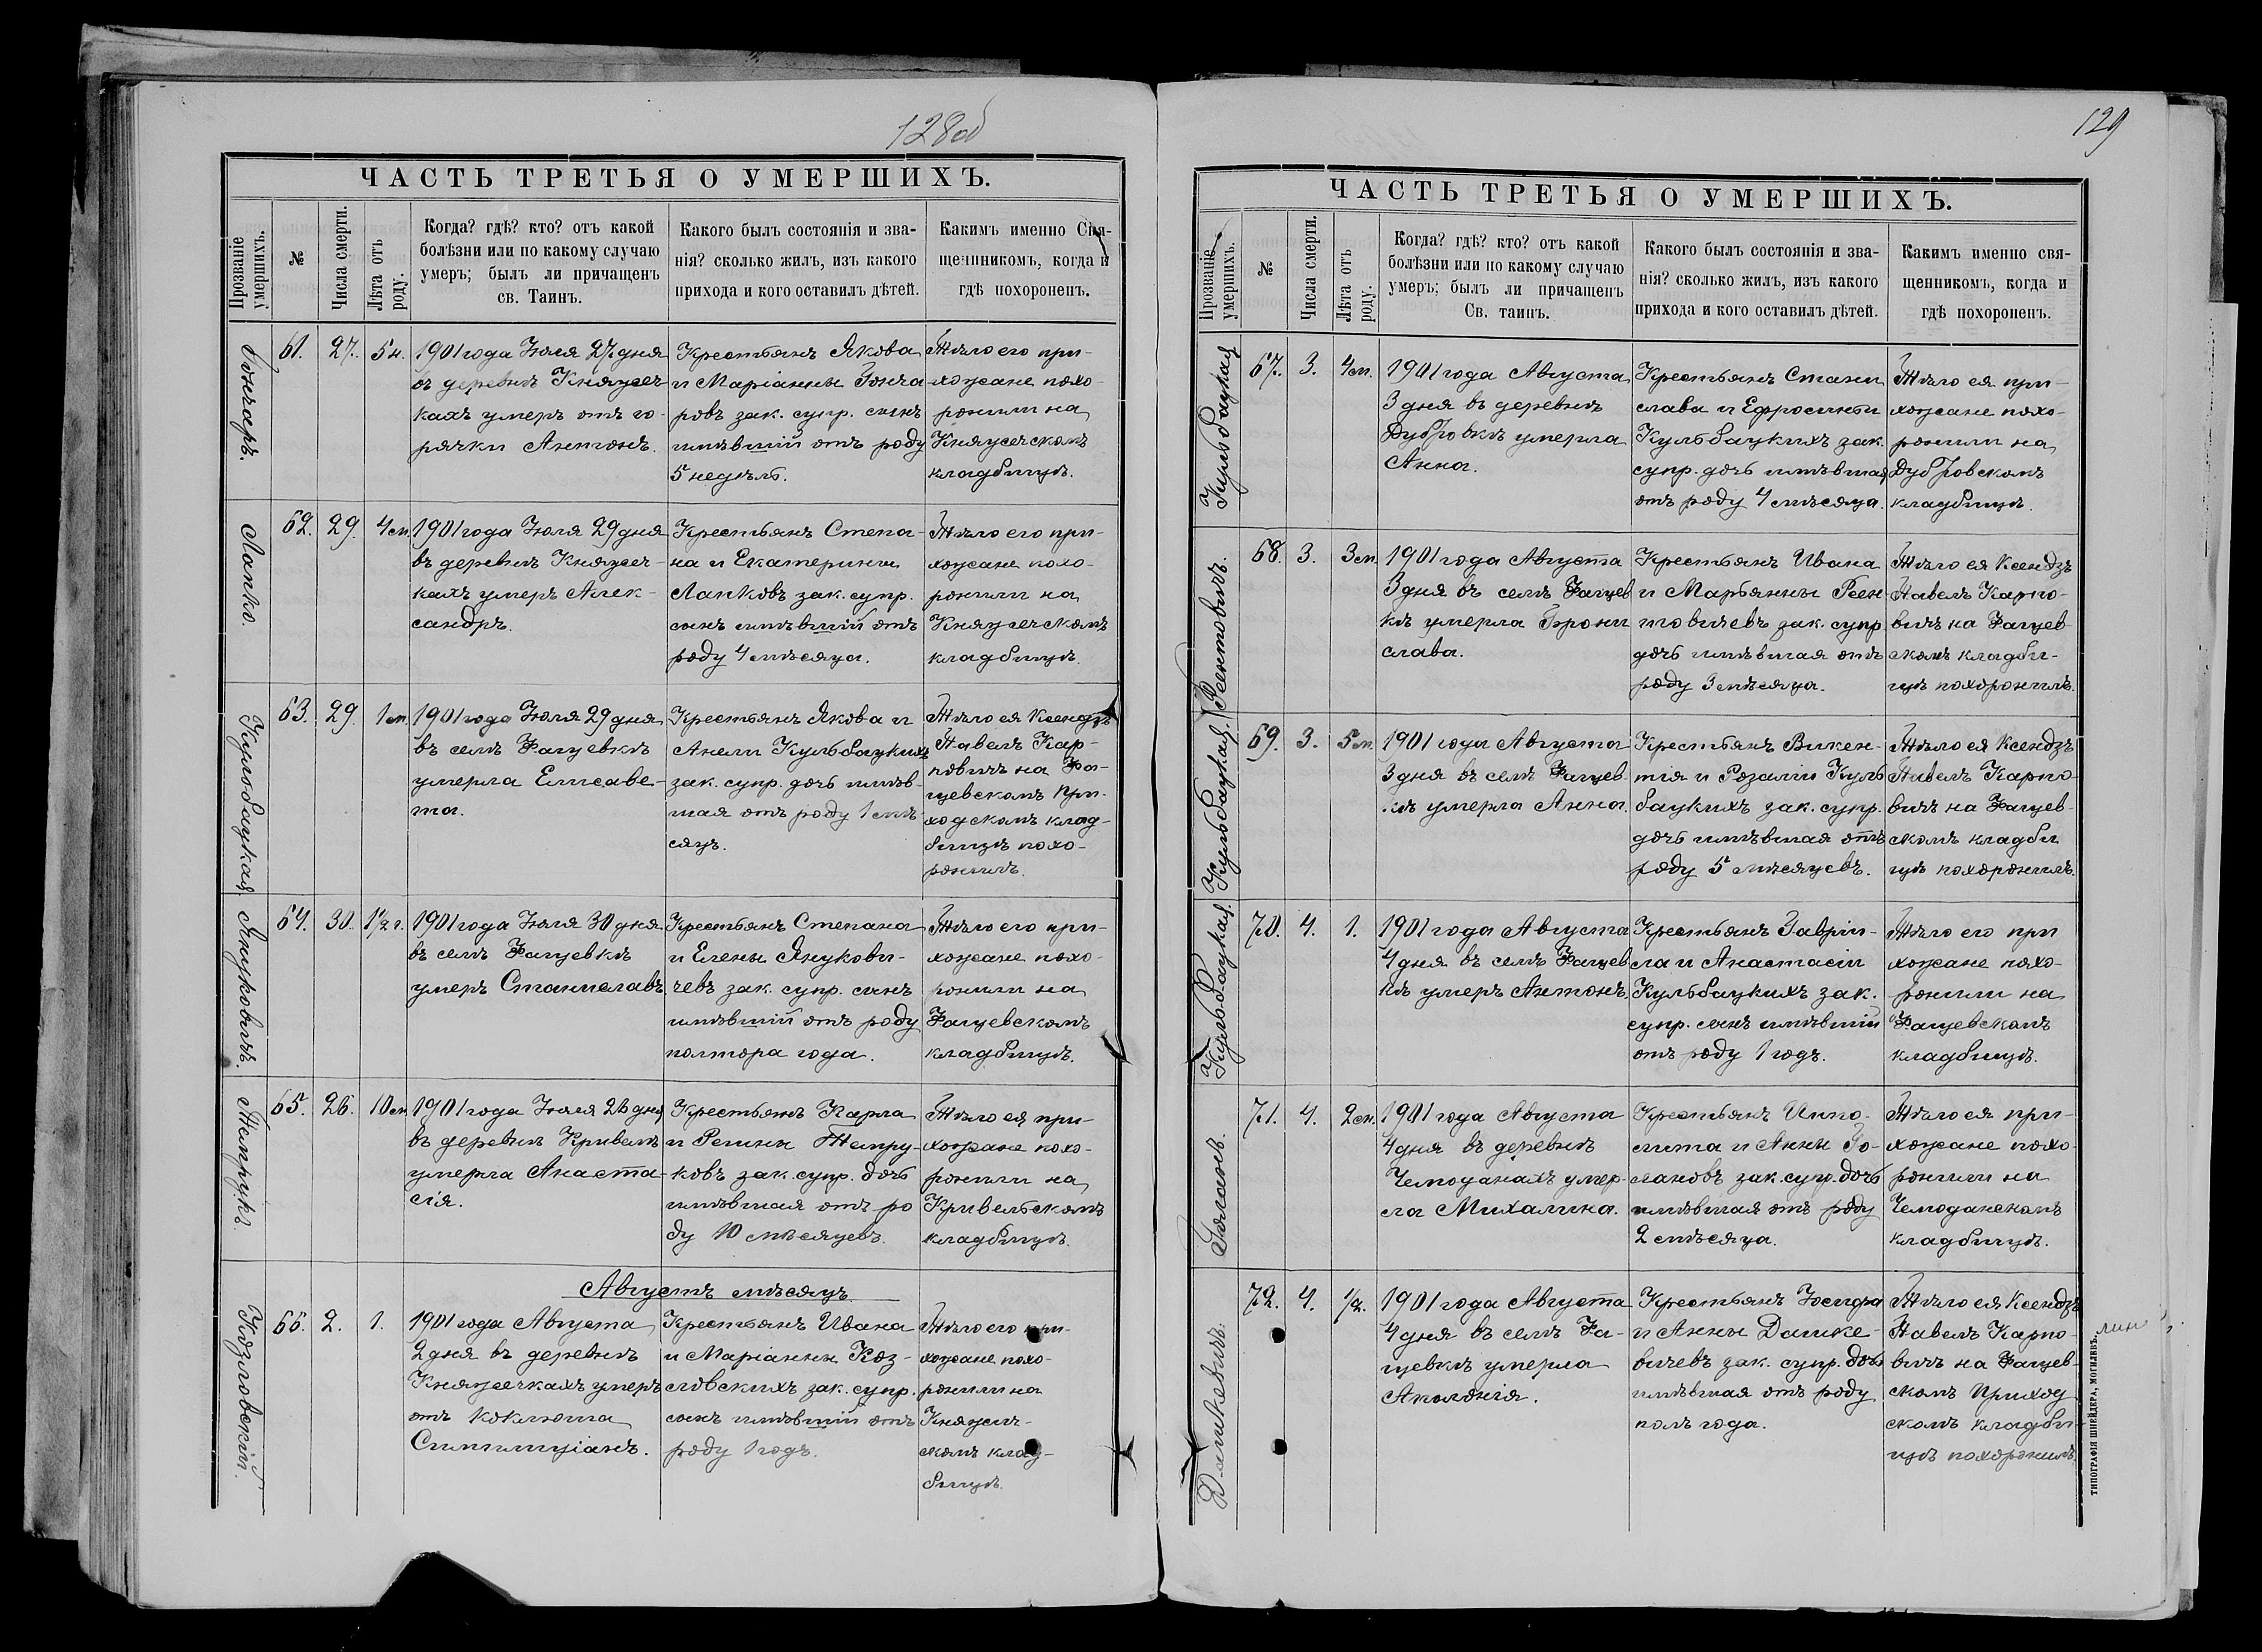 128об
ЧАСТЬ ТРЕТЬЯ О УМЕРШИХЪ.
Прозваніе умершихъ.
№
Числа смерти.
Лѣта отъ роду.
Когда? гдѣ? кто? отъ какой
болѣзни или по какому случаю
умеръ; былъ ли причащенъ
св. Таинъ.
Какого былъ состоянія и зва-
нія? сколько жилъ, изъ какого
прихода и кого оставилъ дѣтей.
Какимъ именно Свя-
щенникомъ, когда и
гдѣ похороненъ.
Гончаръ.
61.
27.
5н.
1901 года Іюля 27 дня
въ деревнѣ Княжеч-
кахъ умеръ отъ го-
рячки Антонъ.
Крестьянъ Якова
и Маріанны Гонча
ровъ зак. супр. сынъ
имѣвшій отъ роду
5 недѣль.
Тѣло его при-
хожане похо-
ронили на
Княжечскомъ
кладбищѣ.
Лапко.
62.
29.
4м.
1901 года Іюля 29 дня
въ деревнѣ Княжеч-
кахъ умеръ Алек-
сандръ.
Крестьянъ Степа-
на и Екатерины
Лапковъ зак. супр.
сынъ имѣвшій отъ
роду 4 мѣсяца.
Тѣло его при-
хожане похо-
ронили на
Княжечскомъ
кладбищѣ.
Кульбацкая.
63.
29.
1м.
1901 года Іюля 29 дня
въ селѣ Фащевкѣ
умерла Елисаве-
та.
Крестьянъ Якова и
Анели Кульбацкихъ
зак. супр. дочь имѣв-
шая отъ роду 1 мѣ-
сяцъ.
Тѣло ея Ксендзъ
Павелъ Кар-
повичъ на Фа-
щевскомъ При-
ходскомъ клад-
бищѣ похо-
ронилъ.
Януковичъ.
64.
30.
1½ г.
1901 года Іюля 30 дня
въ селѣ Фащевкѣ
умеръ Станиславъ.
Крестьянъ Степана
и Елены Янукови-
чевъ зак. супр. сынъ
имѣвшій отъ роду
полтора года.
Тѣло его при-
хожане похо-
ронили на
Фащевскомъ
кладбищѣ.
Тепрукъ.
65.
26.
10м.
1901 года Іюля 26 дня
въ деревнѣ Кривелѣ
умерла Анаста-
сія.
Крестьянъ Карла
и Регины Тепру-
ковъ зак. супр. дочь
имѣвшая отъ ро
ду 10 мѣсяцевъ.
Тѣло ея при-
хожане похо-
ронили на
Кривельскомъ
кладбищѣ.
Августъ мѣсяцъ.
Козловскій.
66.
2.
1.
1901 года Августа
2 дня въ деревнѣ
Княжечкахъ умеръ
отъ коклюша
Симплиціанъ.
Крестьянъ Ивана
и Маріанны Коз-
ловскихъ зак. супр.
сынъ имѣвшій отъ
роду 1 годъ.
Тѣло его при-
хожане похо-
ронили на
Княжеч-
скомъ клад-
бищѣ.
129
ЧАСТЬ ТРЕТЬЯ О УМЕРШИХЪ.
Прозваніе умершихъ.
№
Числа смерти.
Лѣта отъ роду.
Когда? гдѣ? кто? отъ какой
болѣзни или по какому случаю
умеръ; былъ ли причащенъ
Св. таинъ.
Какого былъ состоянія и зва-
нія? сколько жилъ, изъ какого
прихода и кого оставилъ дѣтей.
Какимъ именно свя-
щенникомъ, когда и
гдѣ похороненъ.
Кульбацкая
67.
3.
4м.
1901 года Августа
3 дня въ деревнѣ
Дубровкѣ умерла
Анна.
Крестьянъ Стани
слава и Ефросиніи
Кульбацкихъ зак.
супр. дочь имѣвшая
отъ роду 4 мѣсяца.
Тѣло ея при-
хожане похо-
ронили на
Дубровскомъ
кладбищѣ.
Реентовичъ.
68.
3.
3м.
1901 года Августа
3 дня въ селѣ Фащев
кѣ умерла Брони
слава.
Крестьянъ Ивана
и Марьянны Реен-
товичевъ зак. супр.
дочь имѣвшая отъ
роду 3 мѣсяца.
Тѣло ея Ксендзъ
Павелъ Карпо-
вичъ на Фащев
скомъ кладби-
щѣ похоронилъ.
Кульбацкая
69.
3.
5м.
1901 года Августа
3 дня въ селѣ Фащев
кѣ умерла Анна.
Крестьянъ Викен-
тія и Розаліи Куль
бацкихъ зак. супр.
дочь имѣвшая отъ
роду 5 мѣсяцевъ.
Тѣло ея Ксендзъ
Павелъ Карпо-
вичъ на Фащев-
скомъ кладби
щѣ похоронилъ.
Кульбацкая.
70.
4.
1.
1901 года Августа
4 дня въ селѣ Фащев
кѣ умеръ Антонъ.
Крестьянъ Гаврiи-
ла и Анастасіи
Кульбацкихъ зак.
супр. сынъ имѣвшій
отъ роду 1 годъ.
Тѣло его при
хожане похо-
ронили на
Фащевскомъ
кладбищѣ.
Голанъ.
71.
4.
2м.
1901 года Августа
4 дня въ деревнѣ
Чемоданахъ умер-
ла Михалина.
Крестьянъ Иппо-
лита и Анны Го-
лановъ зак. супр. дочь
имѣвшая отъ роду
2 мѣсяца.
Тѣло ея при-
хожане похо-
ронили на
Чемоданскомъ
кладбищѣ.
Дашкевичъ.
72.
4.
½.
1901 года Августа
4 дня въ селѣ Фа-
щевкѣ умерла
Аполонія.
Крестьянъ Іосифа
и Анны Дашке-
вичевъ зак. супр. дочь
имѣвшая отъ роду
полъ года.
Тѣло ея Ксендзъ
Павелъ Карпо-
вичъ на Фащев-
скомъ Приход
скомъ кладби-
щѣ похоронилъ.
ТИПОГРАФІЯ ШНЕЙДЕРА, МОГИЛЕВЪ.